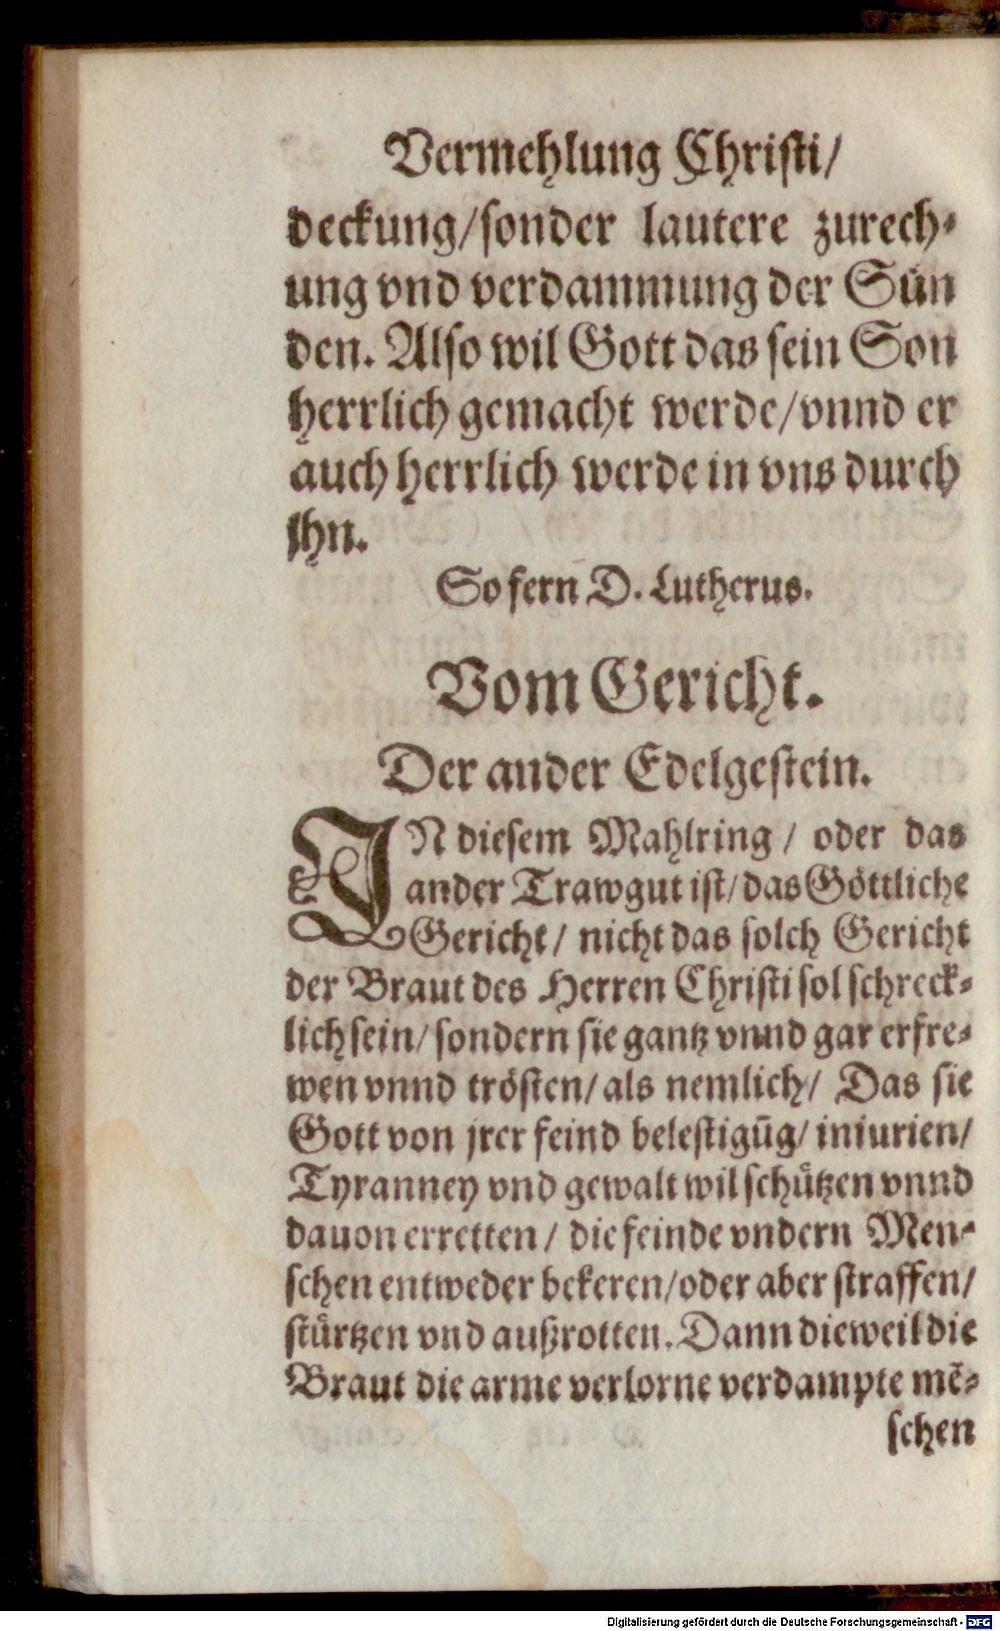 Vermehlung Christi/
deckung/sonder lautere zurech-
ung vnd verdammung der Sün
den. Also wil Gott das sein Son
herrlich gemacht werde/vnnd er
auch herrlich werde in vns durch
jhn.
So fern D. Lutherus.
Vom Gericht.
Der ander Edelgestein.
IN diesem Mahlring / oder das
ander Trawgut ist/das Göttliche
Gericht/ nicht das solch Gericht
der Braut des Herren Christi sol schreck-
lich sein/ sondern sie gantz vnnd gar erfre-
wen vnnd trösten/ als nemlich/ Das sie
Gott von jrer feind belestigūg/ iniurien/
Tyranney vnd gewalt wil schützen vnnd
dauon erretten/ die feinde vndern Men-
schen entweder bekeren/oder aber straffen/
stürtzen vnd außrotten. Dann dieweil die
Braut die arme verlorne verdampte mē-
schen
Digitalisierung gefördert durch die Deutsche Forschungsgemeinschaft - DFG